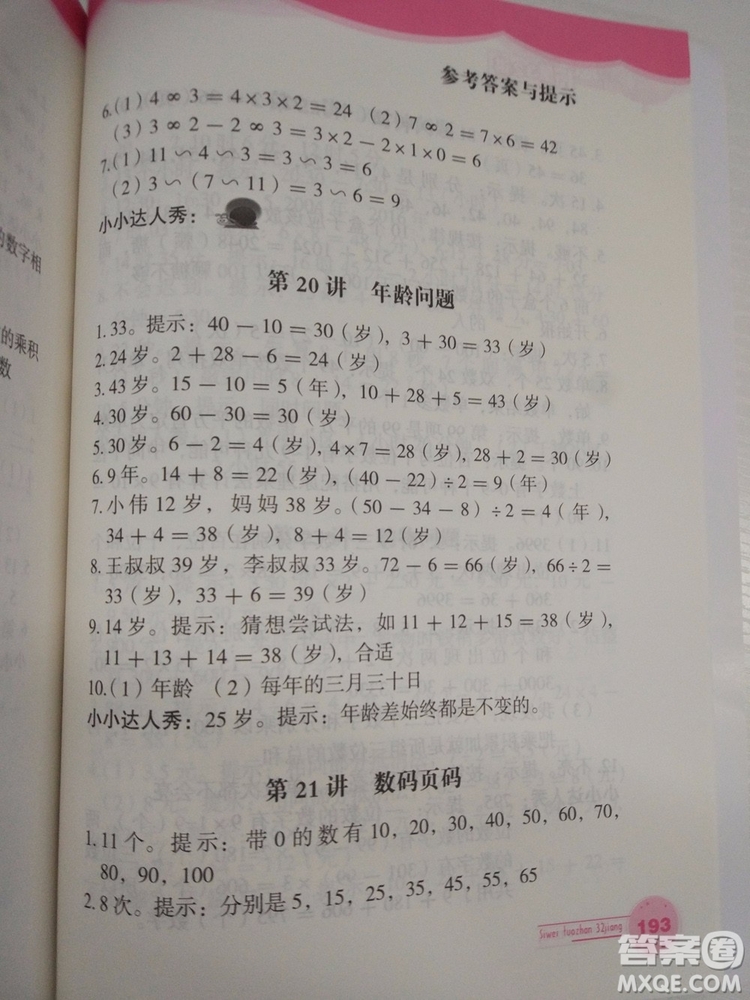 参考答案与提示
6.(1) 4 ∞ 3 = 4×3×2 = 24 (2) 7 ∞ 2 = 7×6 = 42
(3) 3 ∞ 2 − 2 ∞ 3 = 3×2 − 2×1×0 = 6
7.(1) 11 ∽ 4 ∽ 3 = 3 ∽ 3 = 6
(2) 3 ∽ (7 ∽ 11) = 3 ∽ 6 = 9
小小达人秀：
的数字相
的乘积
数
第 20 讲 年龄问题
1.33。提示：40 − 10 = 30（岁），3 + 30 = 33（岁）
2.24 岁。2 + 28 − 6 = 24（岁）
3.43 岁。15 − 10 = 5（年），10 + 28 + 5 = 43（岁）
4.30 岁。60 − 30 = 30（岁）
5.30 岁。6 − 2 = 4（岁），4×7 = 28（岁），28 + 2 = 30（岁）
6.9 年。14 + 8 = 22（岁），(40 − 22)÷2 = 9（年）
7.小伟 12 岁，妈妈 38 岁。(50 − 34 − 8)÷2 = 4（年），
34 + 4 = 38（岁），8 + 4 = 12（岁）
8.王叔叔 39 岁，李叔叔 33 岁。72 − 6 = 66（岁），66÷2 =
33（岁），33 + 6 = 39（岁）
9.14 岁。提示：猜想尝试法，如 11 + 12 + 15 = 38（岁），
11 + 13 + 14 = 38（岁），合适
10.(1) 年龄 (2) 每年的三月三十日
小小达人秀：25 岁。提示：年龄差始终都是不变的。
第 21 讲 数码页码
1.11 个。提示：带 0 的数有 10，20，30，40，50，60，70，
80，90，100
2.8 次。提示：分别是 5，15，25，35，45，55，65
Siwei tuozhan 32jiang
193
答案圈
MXQE.COM